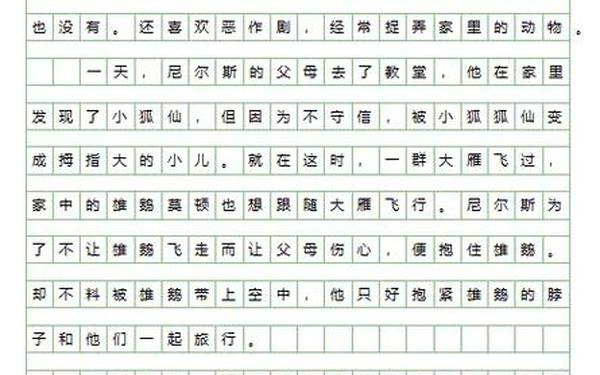 也没有。还喜欢恶作剧，经常捉弄家里的动物。
一天，尼尔斯的父母去了教堂，他在家里
发现了小狐仙，但因为不守信，被小狐狐仙变
成拇指大的小儿。就在这时，一群大雁飞过，
家中的雄鹅莫顿也想跟随大雁飞行。尼尔斯为
了不让雄鹅飞走而让父母伤心，便抱住雄鹅。
却不料被雄鹅带上空中，他只好抱紧雄鹅的脖
子和他们一起旅行。